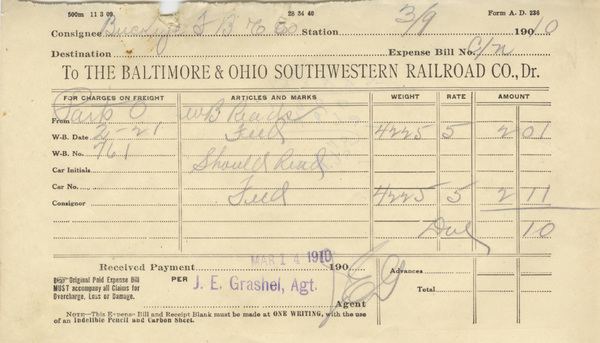 500m 11 3 09 28 54 46 Form A. D. 236
Consignee F B & Co Station 3/9 19010
Destination Expense Bill No. C/n
To THE BALTIMORE & OHIO SOUTHWESTERN RAILROAD CO., Dr.
FOR CHARGES ON FREIGHT ARTICLES AND MARKS WEIGHT RATE AMOUNT
From Park O WB Reads
W-B. Date 2-21 Feed 4225 5 2 01
W-B. No. 761
Car Initials Should Read
Car No. Feed 4225 5 2 11
Consignor
Due 10
Received Payment MAR 14 1910 190
PER J. E. Grashel, Agt. Advances
Original Paid Expense Bill
MUST accompany all Claims for
Overcharge, Loss or Damage.
Total
Agent
NOTE—This Expense Bill and Receipt Blank must be made at ONE WRITING, with the use
of an Indelible Pencil and Carbon Sheet.